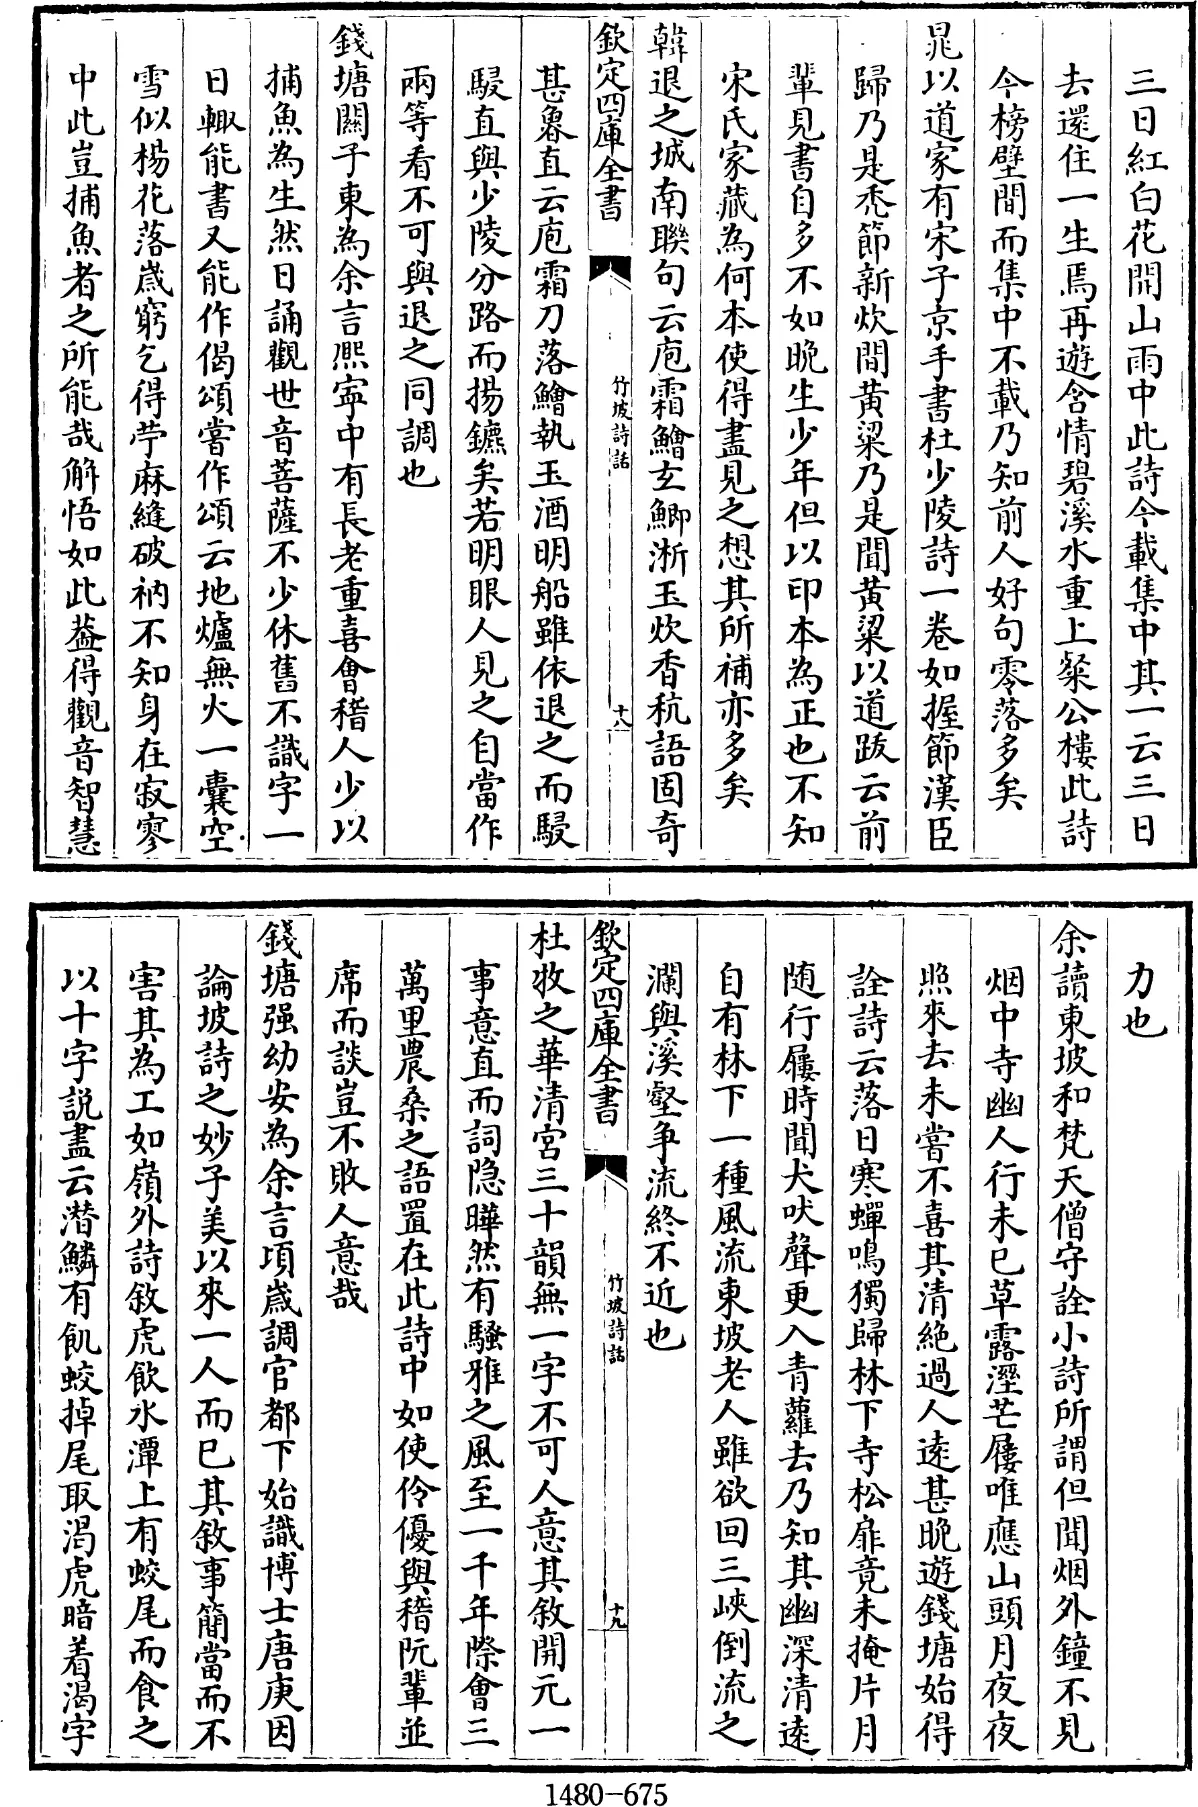 三日紅白花開山雨中此詩今載集中其一云三日
去還住一生焉再遊含情碧溪水重上粲公樓此詩
今榜壁間而集中不載乃知前人好句零落多矣
晁以道家有宋子京手書杜少陵詩一卷如握節漢臣
歸乃是禿節新炊間黄粱乃是聞黄粱以道跋云前
輩見書自多不如晚生少年但以印本為正也不知
宋氏家藏為何本使得盡見之想其所補亦多矣
韓退之城南聯句云庖霜鱠玄鯽淅玉炊香秔語固奇
欽定四庫全書
竹坡詩話
十八
甚魯直云庖霜刀落鱠執玉酒明船雖依退之而駸
駸直與少陵分路而揚鑣矣若明眼人見之自當作
兩等看不可與退之同調也
錢塘關子東為余言熈寧中有長老重喜會稽人少以
捕魚為生然日誦觀世音菩薩不少休舊不識字一
日輙能書又能作偈頌嘗作頌云地爐無火一囊空
雪似楊花落歲窮乞得苧麻縫破衲不知身在寂寥
中此豈捕魚者之所能哉解悟如此葢得觀音智慧
力也
余讀東坡和梵天僧守詮小詩所謂但聞烟外鐘不見
烟中寺幽人行未已草露溼芒屨唯應山頭月夜夜
照來去未嘗不喜其清絶過人逺甚晚遊錢塘始得
詮詩云落日寒蟬鳴獨歸林下寺松扉竟未掩片月
随行屨時聞犬吠聲更入青蘿去乃知其幽深清逺
自有林下一種風流東坡老人雖欲回三峽倒流之
瀾與溪壑争流終不近也
欽定四庫全書
竹坡詩話
十九
杜牧之華清宫三十韻無一字不可人意其敘開元一
事意直而詞隐曄然有騷雅之風至一千年際會三
萬里農桑之語置在此詩中如使伶優與稽阮輩並
席而談豈不敗人意哉
錢塘强幼安為余言頃歲調官都下始識博士唐庚因
論坡詩之妙子美以來一人而已其敘事簡當而不
害其為工如嶺外詩敘虎飲水潭上有蛟尾而食之
以十字説盡云潛鱗有飢蛟掉尾取渇虎暗着渇字
1480-675